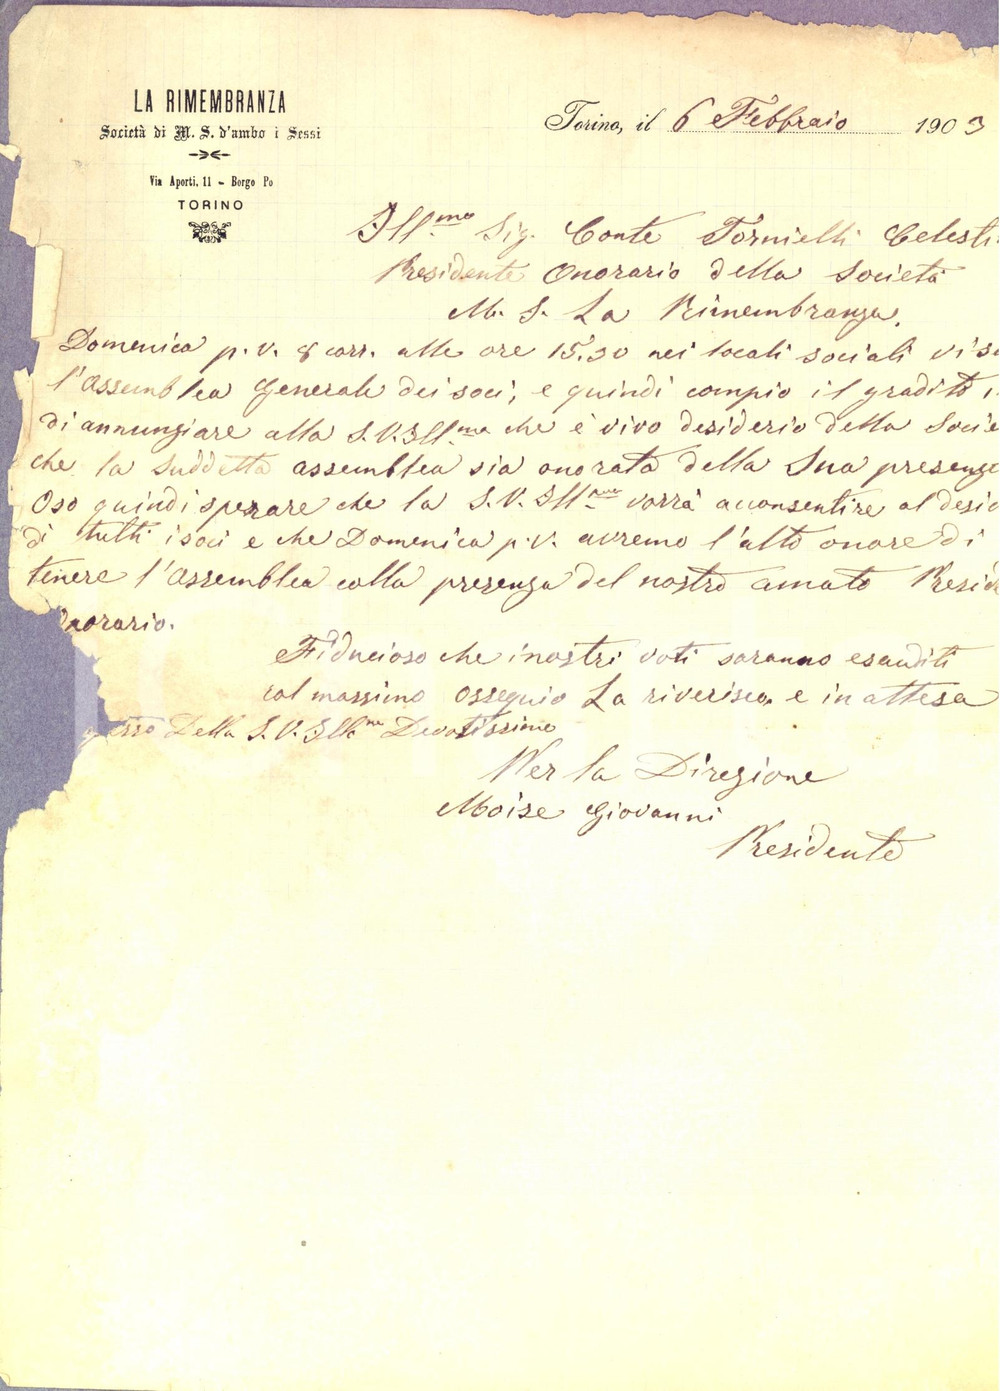 LA RIMEMBRANZA
Società di M. S. d'ambo i Sessi
Via Aporti, 11 - Borgo Po
TORINO
Torino, il 6 Febbraio 1903
Ill.mo Sig. Conte Tornielli Celesti
Presidente Onorario della Società
M. S. La Rimembranza.
Domenica p. v. 8 corr. alle ore 15.30 nei locali sociali vi s
l'Assemblea Generale dei soci, e quindi compio il gradito
di annunziare alla S. V. Ill.ma che è vivo desiderio della Socie
che la suddetta assemblea sia onorata della Sua presenz
Oso quindi sperare che la S. V. Ill.ma vorrà acconsentire al desid
di tutti i soci e che Domenica p. v. avremo l'alto onore di
tenere l'Assemblea colla presenza del nostro amato Presid
norario.
Fiducioso che i nostri voti saranno esauditi
col massimo ossequio La riverisco e in attesa
gesso Della S. V. Ill.ma Devotissimo
Per la Direzione
Moise Giovanni
Presidente